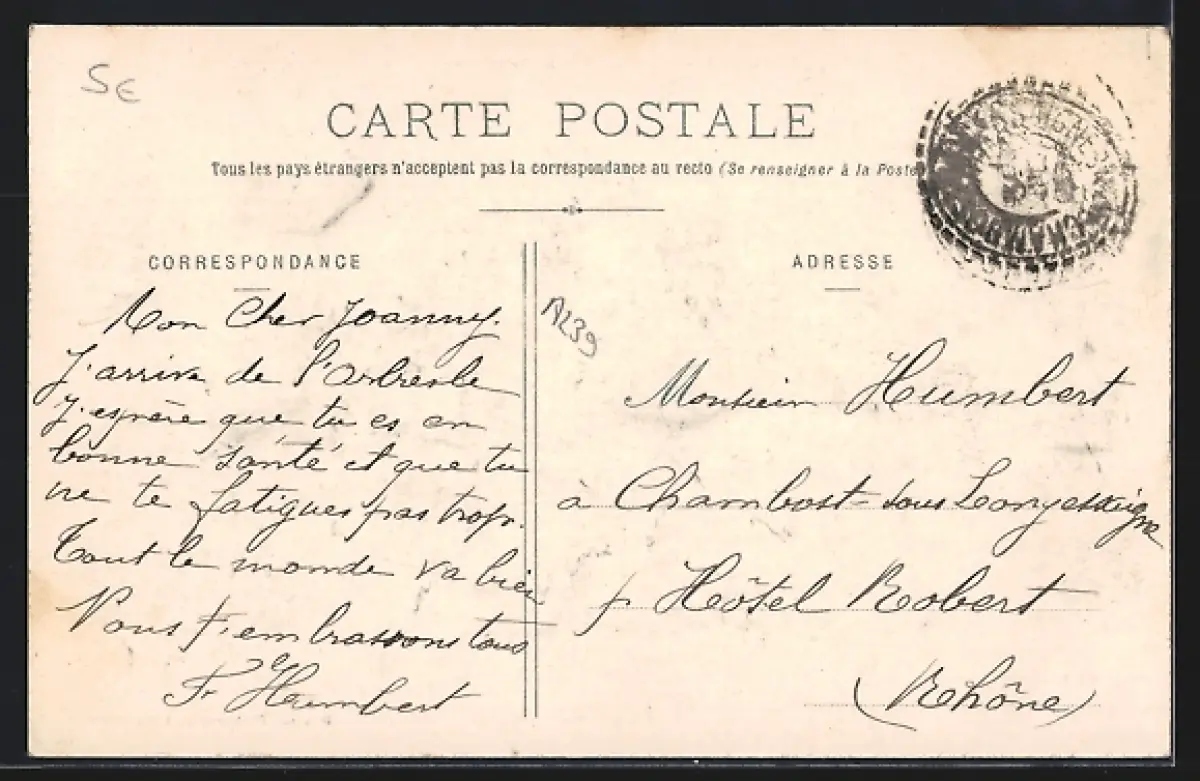 5€
CARTE POSTALE
Tous les pays étrangers n'acceptent pas la correspondance au recto (Se renseigner à la Poste
CORRESPONDANCE
Mon Cher Joanny.
J'arrive de l'arbresle
J'espère que tu es en
bonne santé et que tu
ne te fatigues pas trop.
Tout le monde va bien
Nous t'embrassons tous
Fr Humbert
AL39
ADRESSE
Monsieur Humbert
à Chambost-sous Longessaigne
Hôtel Robert
(Rhône)